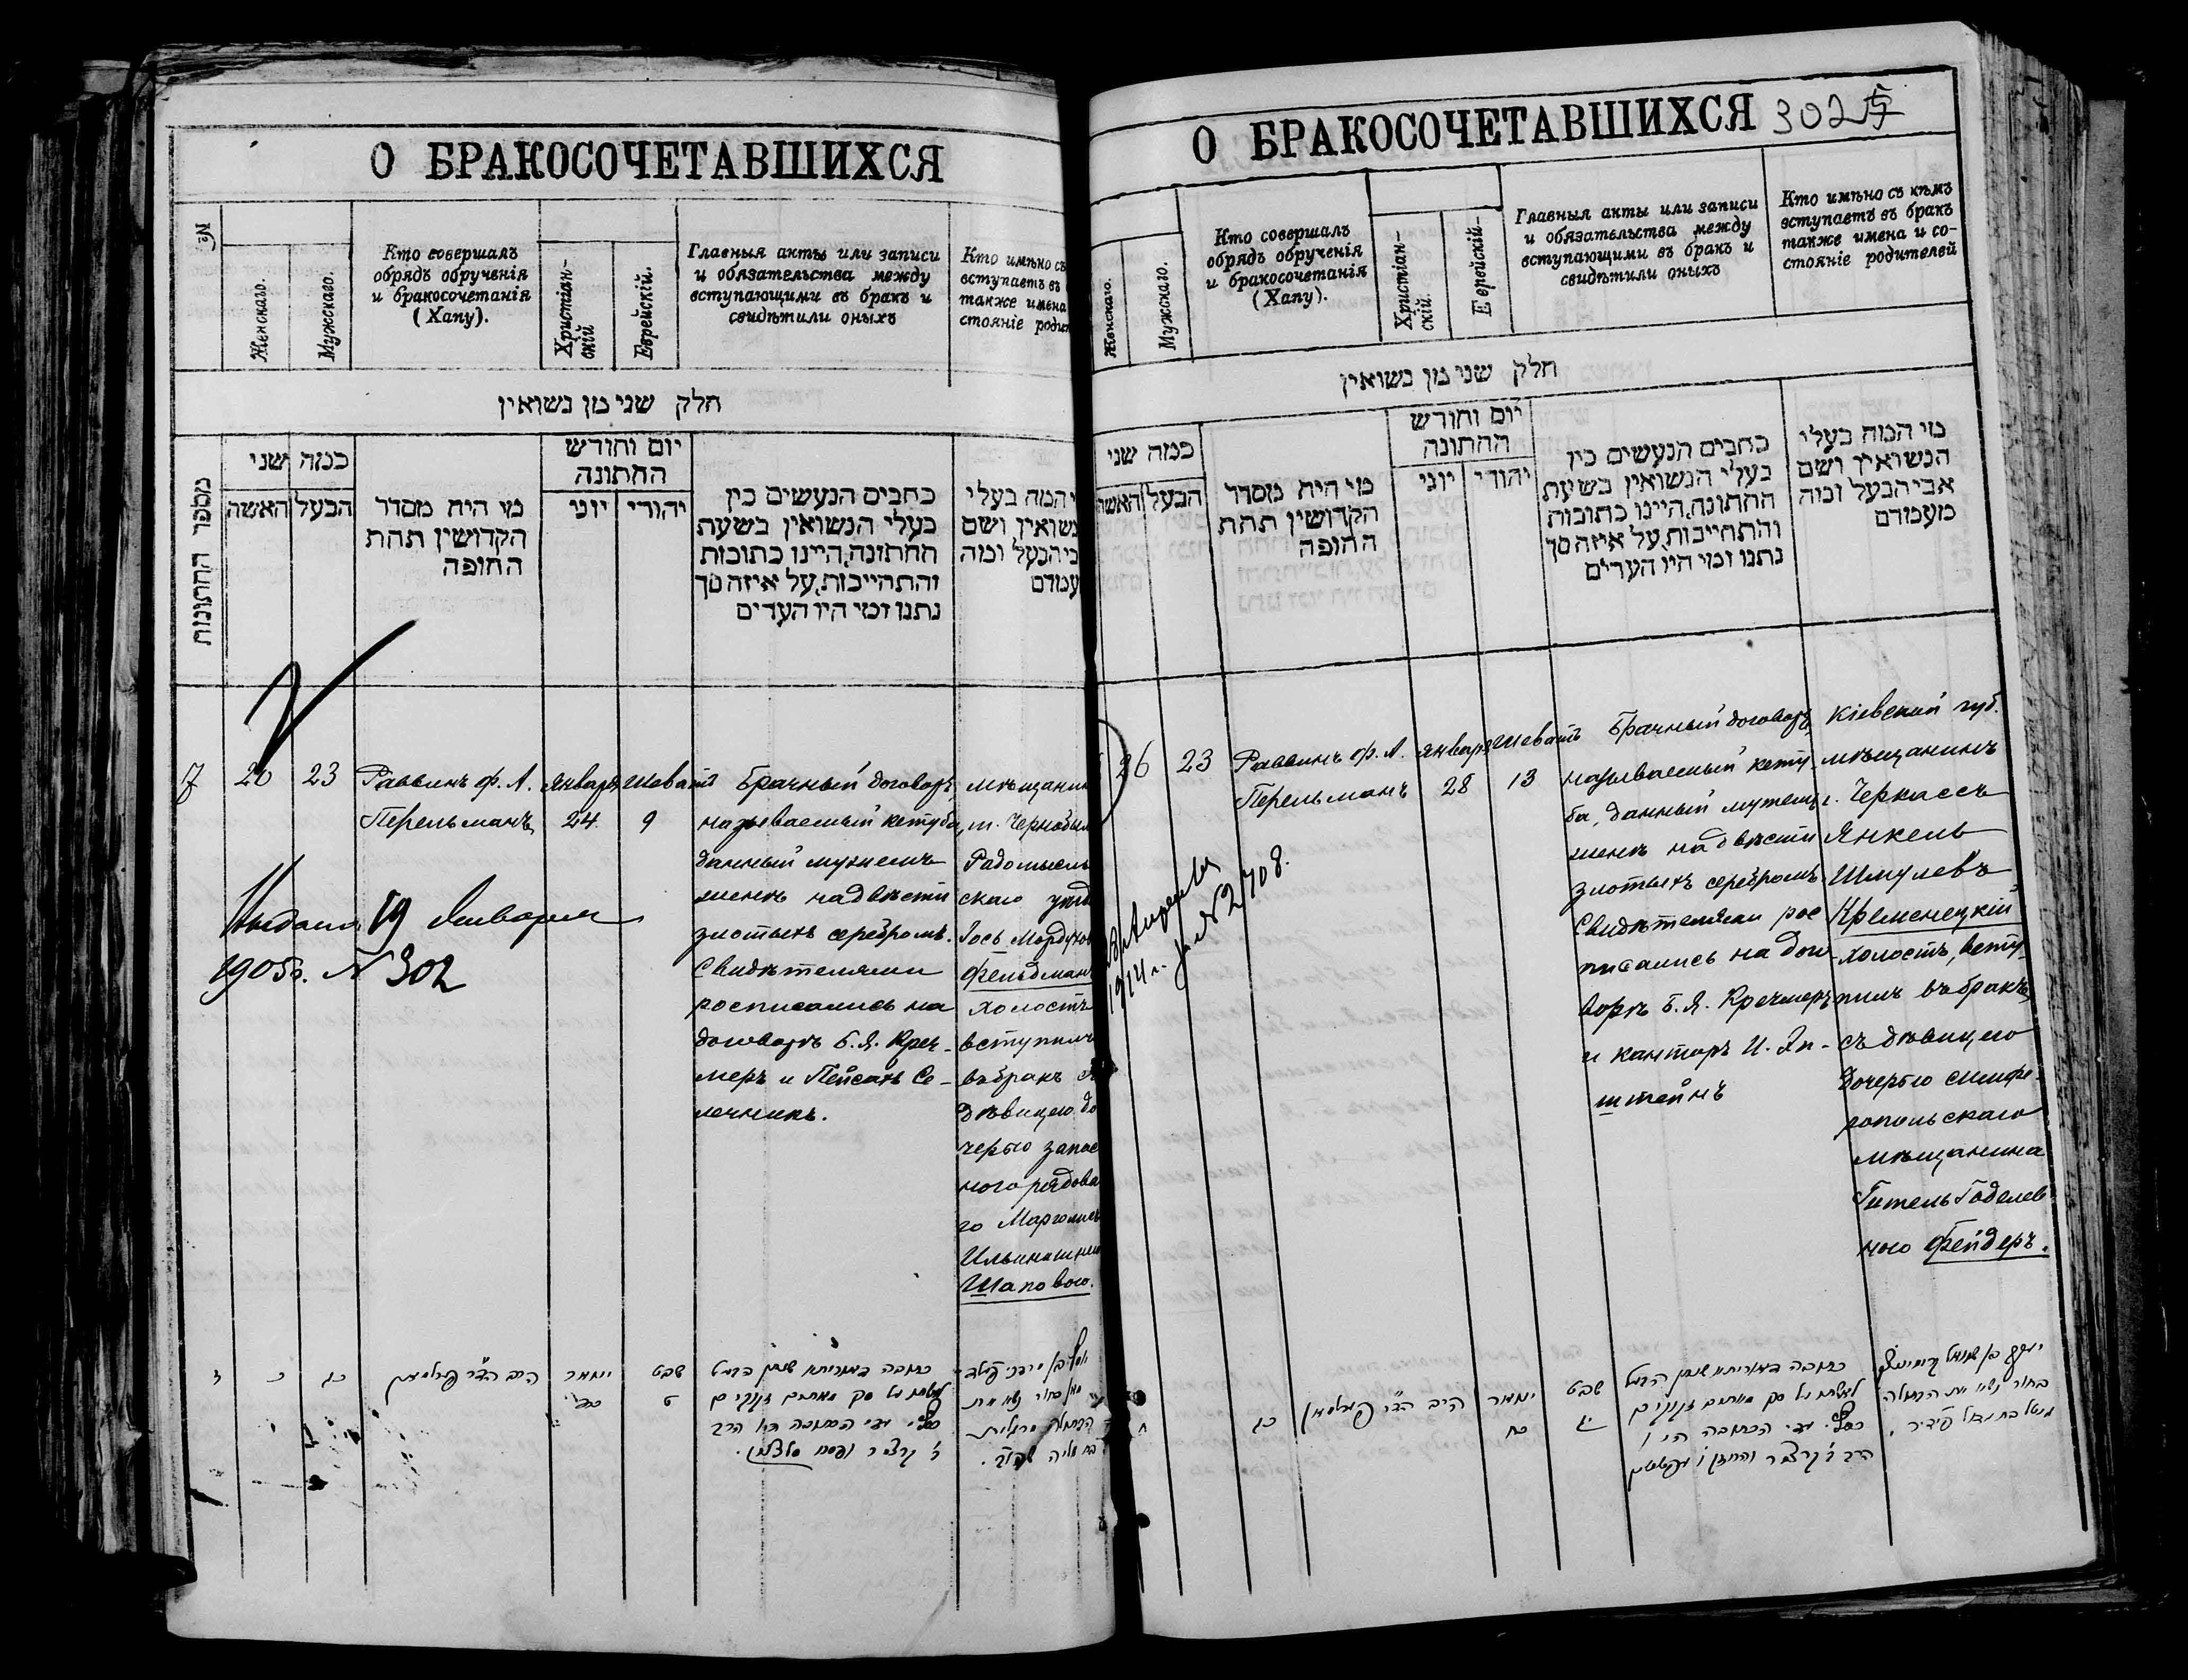 О БРАКОСОЧЕТАВШИХСЯ
№
Женскаго.
Мужскаго.
Кто совершалъ
обрядъ обрученія
и бракосочетанія
(Хапу).
Христіан-
скій
Еврейскій.
Главныя акты или записи
и обязательства между
вступающими въ бракъ и
свидѣтили оныхъ
Кто имѣно съ
вступаетъ въ
также имена
стояніе роди
חלק שני מן נשואין
מספר החתונות
כמה שני
האשה
הבעל
מי היה מסדר
הקדושין תחת
החופה
יום וחודש
החתונה
יוני
יהודי
כתבים הנעשים בין
בעלי הנשואין בשעת
החתונה, היינו כתובות
והתחייבות, על איזה סך
נתנו ומי היו העדים
י המה בעלי
נשואין ושם
בי הבעל ומה
עמדם
7
20
23
Раввинъ Ф. А.
Перельманъ
Января
24
Шеватъ
9
Брачный договоръ,
называемый кетуба,
данный мужемъ
женѣ на двѣсти
злотыхъ серебромъ.
Свидѣтелями
росписались на
договорѣ Б. Я. Креч-
меръ и Пейсахъ Се-
лечникъ.
мѣщанин
м. Чернобыл
Радомысль
скаго уѣзд
Іось Мордухов
Фельдман
холостъ
вступилъ
въ бракъ съ
дѣвицею до
черью запас
ного рядова
го Марголисъ
Ильиничнею
Шаповою.
Выдано 19 Января
1905 г. № 302
ז
כ
כג
הרב הד״ר פערלמאן
ינואר
כד
שבט
ט
О БРАКОСОЧЕТАВШИХСЯ 302
Женскаго.
Мужскаго.
Кто совершалъ
обрядъ обрученія
и бракосочетанія
(Хапу).
Христіан-
скій.
Еврейскій-
Главныя акты или записи
и обязательства между
вступающими въ бракъ и
свидѣтили оныхъ
Кто имѣно съ кѣмъ
вступаетъ въ бракъ
также имена и со-
стояніе родителей
חלק שני מן נשואין
כמה שני
האשה
הבעל
מי היה מסדר
הקדושין תחת
החופה
יום וחודש
החתונה
יוני
יהודי
כתבים הנעשים בין
בעלי הנשואין בשעת
החתונה, היינו כתובות
והתחייבות, על איזה סך
נתנו ומי היו העדים
מי המה בעלי
הנשואין ושם
אבי הבעל ומה
מעמדם
26
23
Раввинъ Ф. А.
Перельманъ
Января
28
Шеватъ
13
Брачный договоръ,
называемый кету-
ба, данный мужемъ
женѣ на двѣсти
злотыхъ серебромъ.
Свидѣтелями рос
писались на дого-
ворѣ Б. Я. Кречмеръ
и канторъ И. Эп-
штейнъ
Кіевской губ.
мѣщанинъ
г. Черкассъ
Янкель
Шмулевъ
Кременецкій
холостъ, всту-
пилъ въ бракъ
съ дѣвицею
дочерью симфе-
ропольскаго
мѣщанина
Гитель Годелев
ною Фейдеръ.
1914 г. за № 2708.
כג
הרב הד״ר פערלמאן
ינואר
כח
שבט
יג